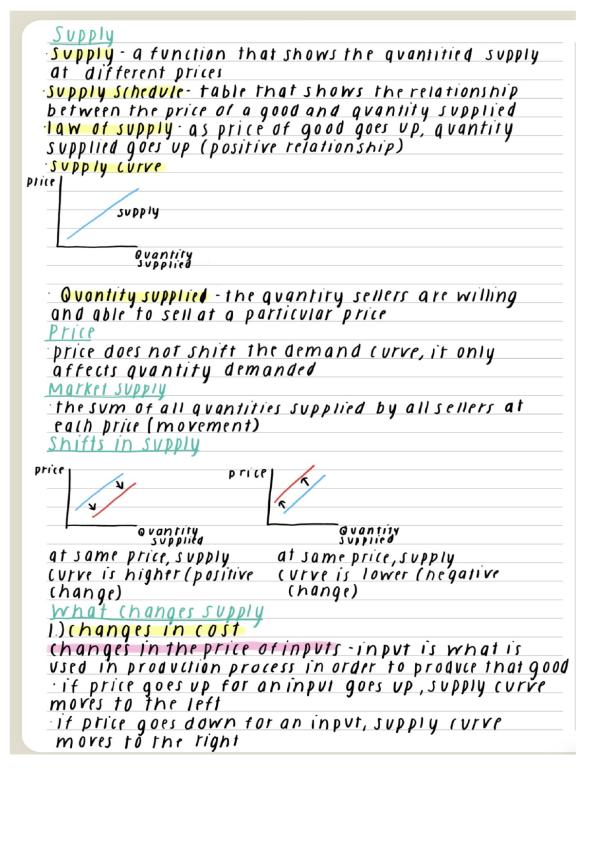 Supply
· Supply - a function that shows the quantitied supply
at different prices
· Supply schedule - table that shows the relationship
between the price of a good and quantity supplied
· law of supply - as price of good goes up, quantity
supplied goes up (positive relationship)
· Supply curve
Price
supply
Quantity
supplied
· Quantity supplied - the quantity sellers are willing
and able to sell at a particular price
Price
· price does not shift the demand curve, it only
affects quantity demanded
Market supply
· the sum of all quantities supplied by all sellers at
each price (movement)
Shifts in supply
price
Quantity
supplied
price
Quantity
supplied
at same price, supply
curve is higher (positive
change)
at same price, supply
curve is lower (negative
change)
What changes supply
1.) changes in cost
changes in the price of inputs - input is what is
used in production process in order to produce that good
· if price goes up for an input goes up, supply curve
moves to the left
· if price goes down for an input, supply curve
moves to the right